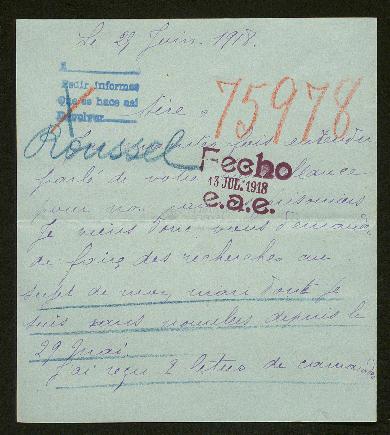 Le 29 Juin 1918.
A
Pedir informes
Que se hace así
Devolver
Sire
75978
Roussel
fois entendu
Fecho
parlé de votre
13 JUL. 1918
pour nos
e.a.e.
Je viens donc vous demander
de faire des recherches au
sujet de mon mari dont je
suis sans nouvelles depuis le
29 Mai
J'ai reçu 2 lettres de camarades